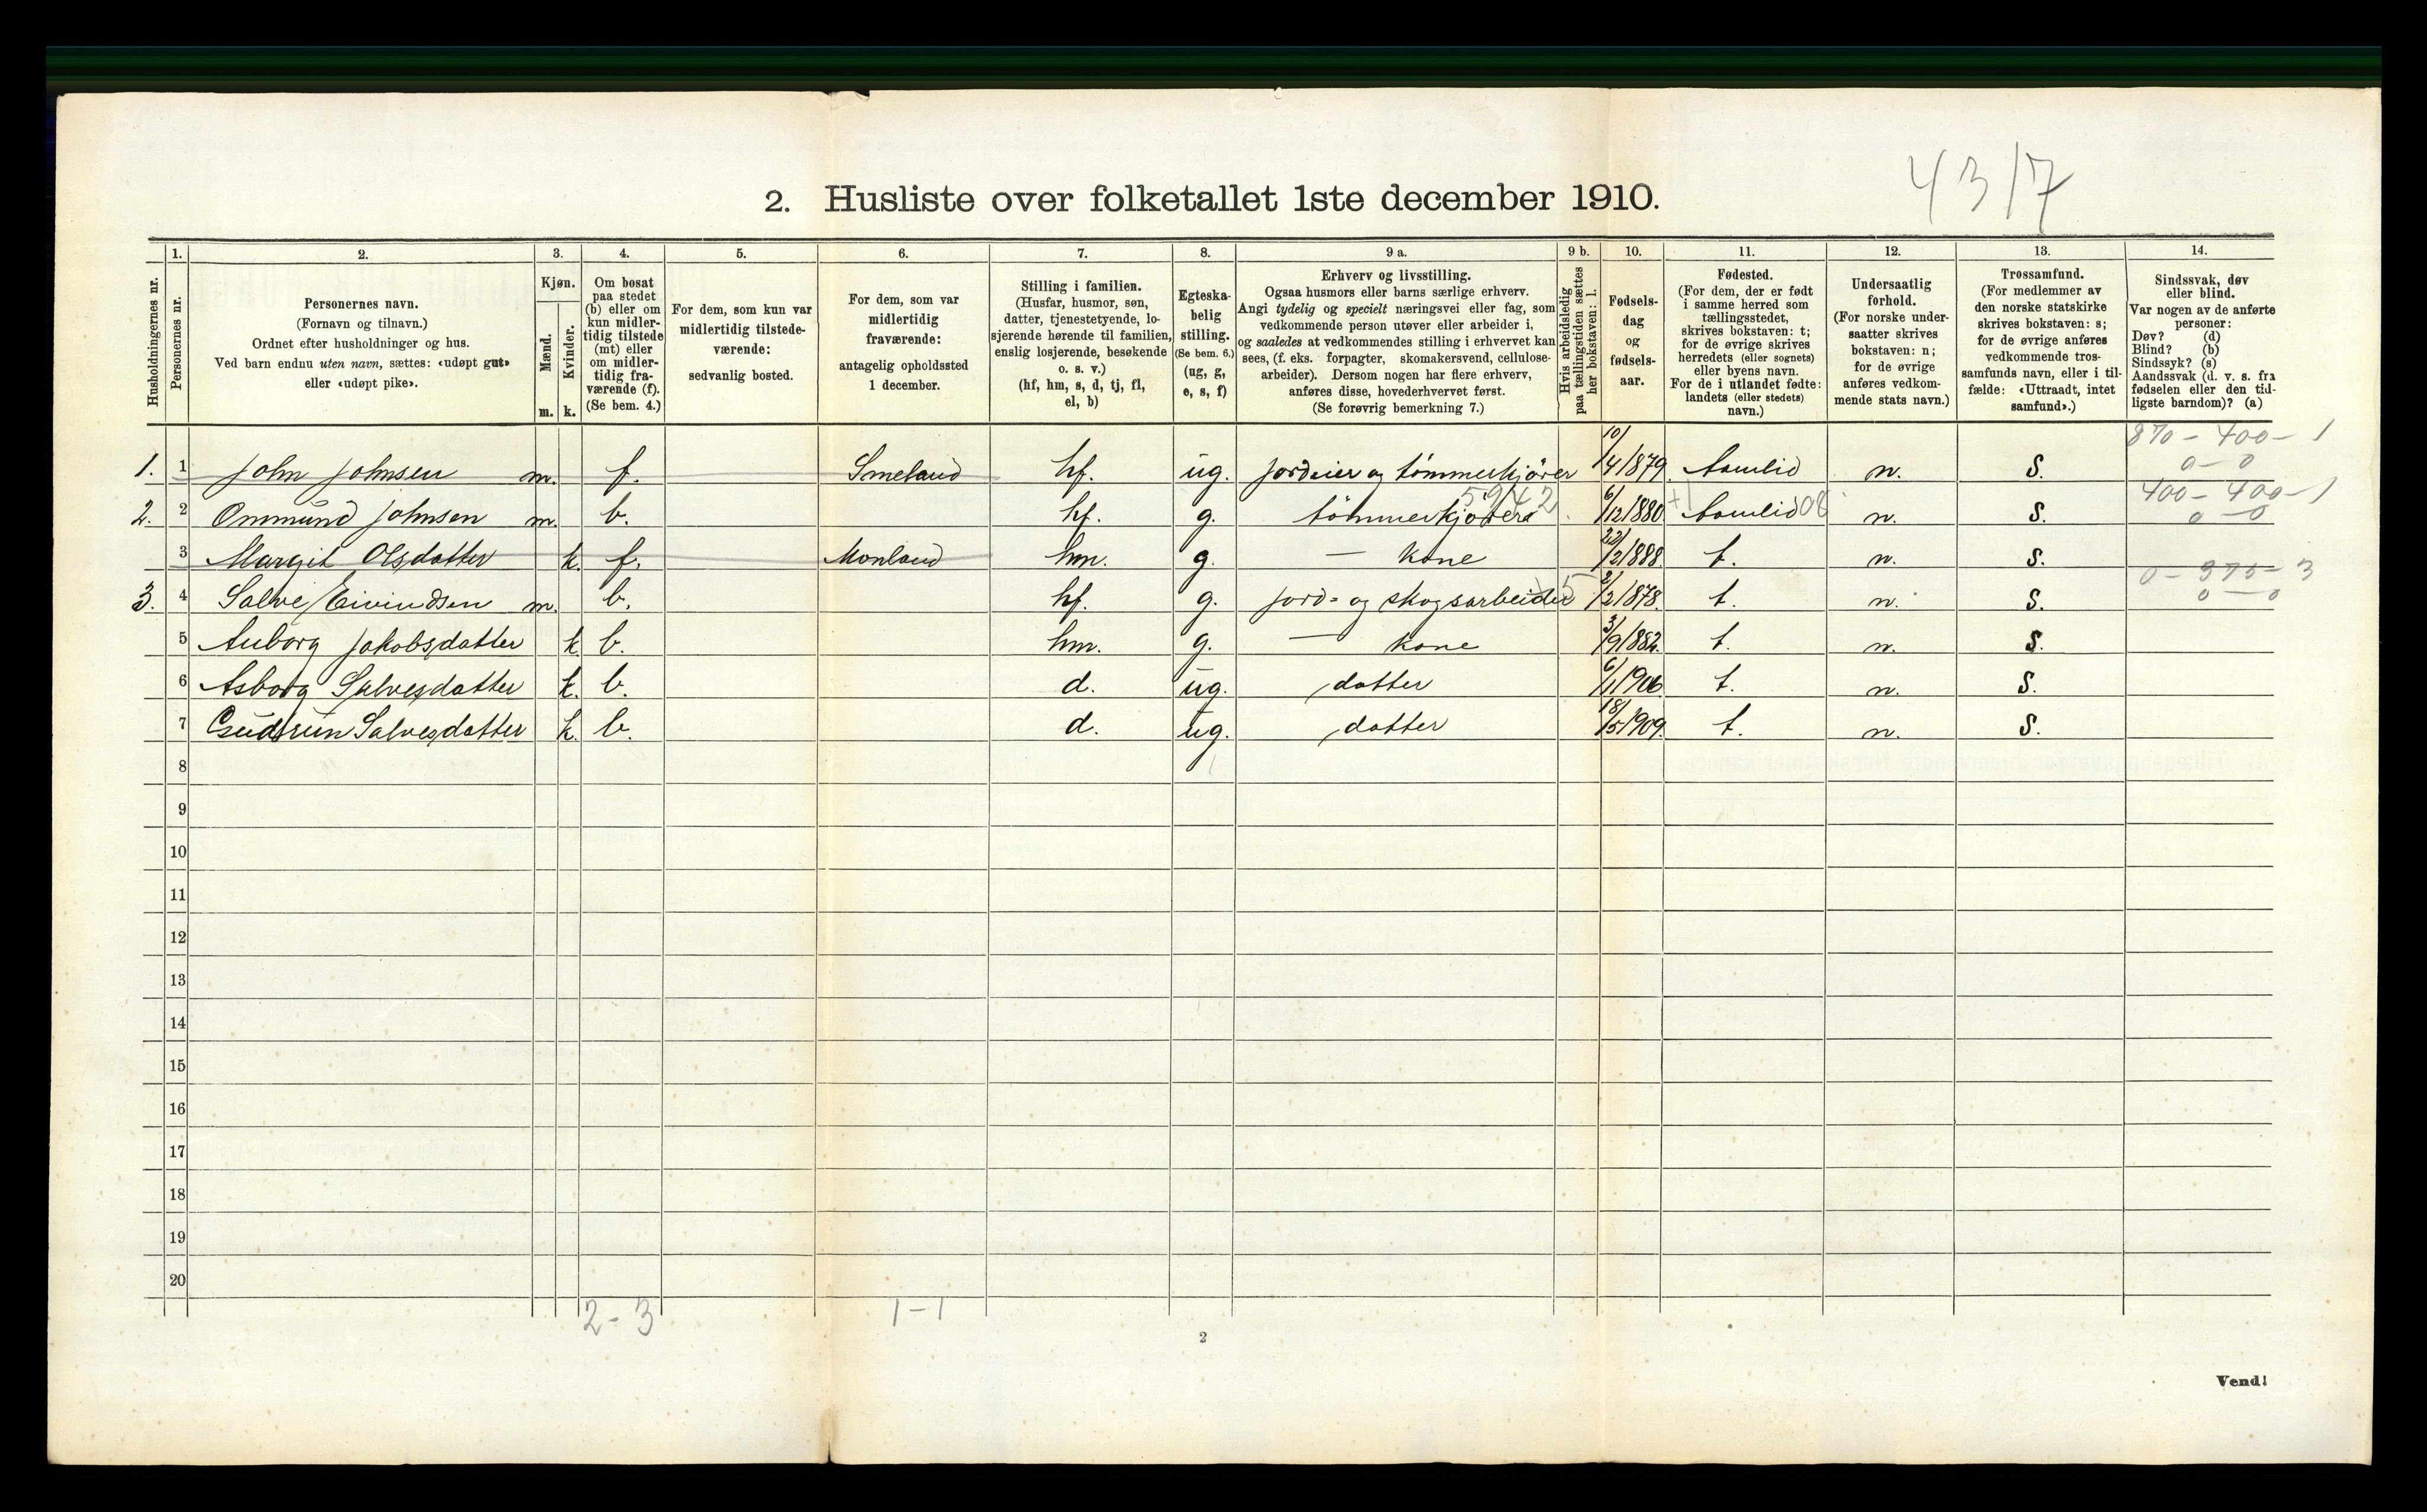 43/7
2. Husliste over folketallet 1ste december 1910.
1. 2. 3. 4. 5. 6. 7. 8. 9 a. 9 b. 10. 11. 12. 13. 14.
Husholdningernes nr.
Personernes nr.
Personernes navn.
(Fornavn og tilnavn.)
Ordnet efter husholdninger og hus.
Ved barn endnu uten navn, sættes: «udøpt gut»
eller «udøpt pike».
Kjøn.
Mænd.
Kvinder.
m. k.
Om bosat
paa stedet
(b) eller om
kun midler-
tidig tilstede
(mt) eller
om midler-
tidig fra-
værende (f).
(Se bem. 4.)
For dem, som kun var
midlertidig tilstede-
værende:
sedvanlig bosted.
For dem, som var
midlertidig
fraværende:
antagelig opholdssted
1 december.
Stilling i familien.
(Husfar, husmor, søn,
datter, tjenestetyende, lo-
sjerende hørende til familien,
enslig losjerende, besøkende
o. s. v.)
(hf, hm, s, d, tj, fl,
el, b)
Egteska-
belig
stilling.
(Se bem. 6.)
(ug, g,
e, s, f)
Erhverv og livsstilling.
Ogsaa husmors eller barns særlige erhverv.
Angi tydelig og specielt næringsvei eller fag, som
vedkommende person utøver eller arbeider i,
og saaledes at vedkommendes stilling i erhvervet kan
sees, (f. eks. forpagter, skomakersvend, cellulose-
arbeider). Dersom nogen har flere erhverv,
anføres disse, hovederhvervet først.
(Se forøvrig bemerkning 7.)
Hvis arbeidsledig
paa tællingstiden sættes
her bokstaven: l.
Fødsels-
dag
og
fødsels-
aar.
Fødested.
(For dem, der er født
i samme herred som
tællingsstedet,
skrives bokstaven: t;
for de øvrige skrives
herredets (eller sognets)
eller byens navn.
For de i utlandet fødte:
landets (eller stedets)
navn.)
Undersaatlig
forhold.
(For norske under-
saatter skrives
bokstaven: n;
for de øvrige
anføres vedkom-
mende stats navn.)
Trossamfund.
(For medlemmer av
den norske statskirke
skrives bokstaven: s;
for de øvrige anføres
vedkommende tros-
samfunds navn, eller i til-
fælde: «Uttraadt, intet
samfund».)
Sindssvak, døv
eller blind.
Var nogen av de anførte
personer:
Døv? (d)
Blind? (b)
Sindssyk? (s)
Aandssvak (d. v. s. fra
fødselen eller den tid-
ligste barndom)? (a)
870 - 400 - 1
1. 1 John Johnsen m. f. Smeland hf. ug. jordeier og tømmerkjører 10/4 1879. Aamlid n. S. 0 - 0
5942 +1 08 400 - 400 - 1
2. 2 Ommund Johnsen m. b. hf. g. tømmerkjører 6/12 1880 Aamlid n. S. 0 - 0
3 Margit Olsdatter k. f. Monland hm. g. — kone 22/2 1888. t. n. S.
0 - 375 - 3
3. 4 Salve Eivindsen m. b. hf. g. jord- og skogsarbeider 2/2 1878. t. n. S. 0 - 0
5 Auborg Jakobsdatter k. b. hm. g. — kone 3/9 1882. t. n. S.
6 Asborg Salvesdatter k. b. d. ug. datter 6/1 1906 t. n. S.
7 Gudrun Salvesdatter k. b. d. ug. datter 18/5 1909. t. n. S.
8
9
10
11
12
13
14
15
16
17
18
19
20
2 - 3 1 - 1
2
Vend!